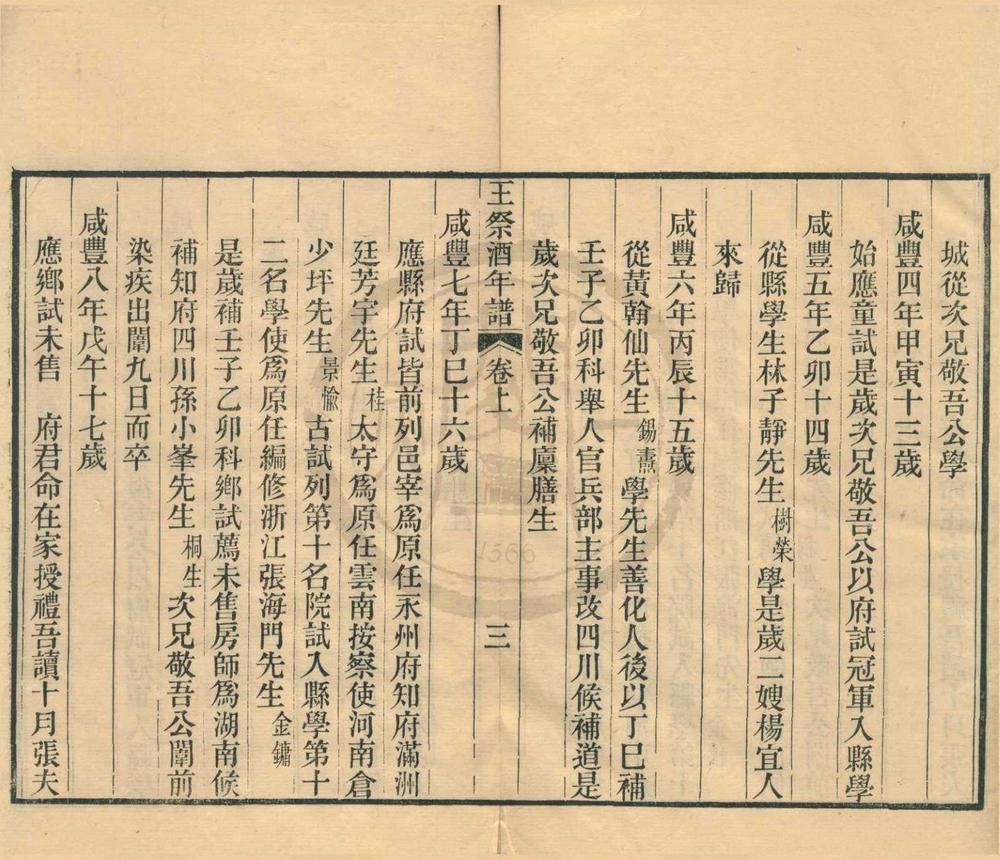 城從次兄敬吾公學
咸豐四年甲寅十三歲
始應童試是歲次兄敬吾公以府試冠軍入縣學
咸豐五年乙卯十四歲
從縣學生林子靜先生樹榮學是歲二嫂楊宜人
來歸
咸豐六年丙辰十五歲
從黃翰仙先生錫燾學先生善化人後以丁巳補
壬子乙卯科舉人官兵部主事改四川候補道是
歲次兄敬吾公補廩膳生
王祭酒年譜 卷上 三
咸豐七年丁巳十六歲
應縣府試皆前列邑宰爲原任永州府知府滿洲
廷芳宇先生桂太守爲原任雲南按察使河南倉
少坪先生景愉古試列第十名院試入縣學第十
二名學使爲原任編修浙江張海門先生金鏞
是歲補壬子乙卯科鄉試薦未售房師爲湖南候
補知府四川孫小峯先生桐生次兄敬吾公闈前
染疾出闈九日而卒
咸豐八年戊午十七歲
應鄉試未售 府君命在家授禮吾讀十月張夫
1566